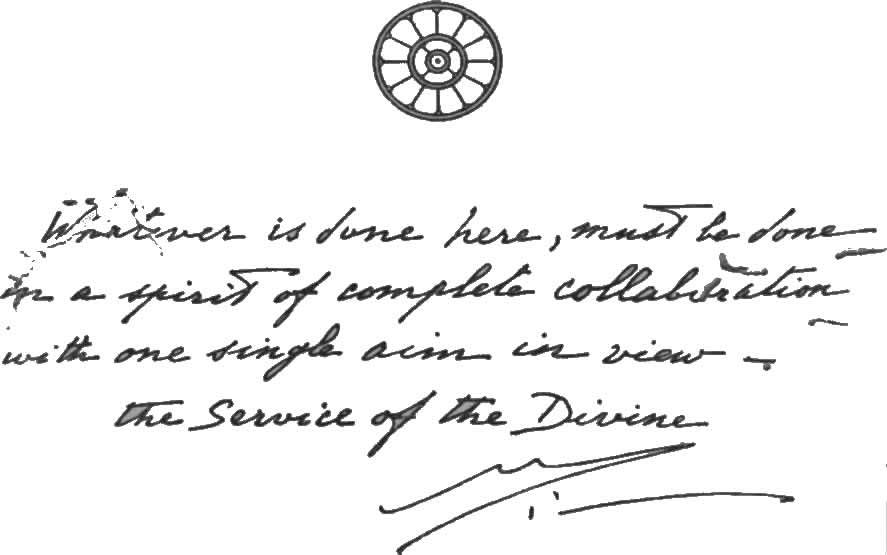 Whatever is done here, must be done
in a spirit of complete collaboration
with one single aim in view –
the Service of the Divine